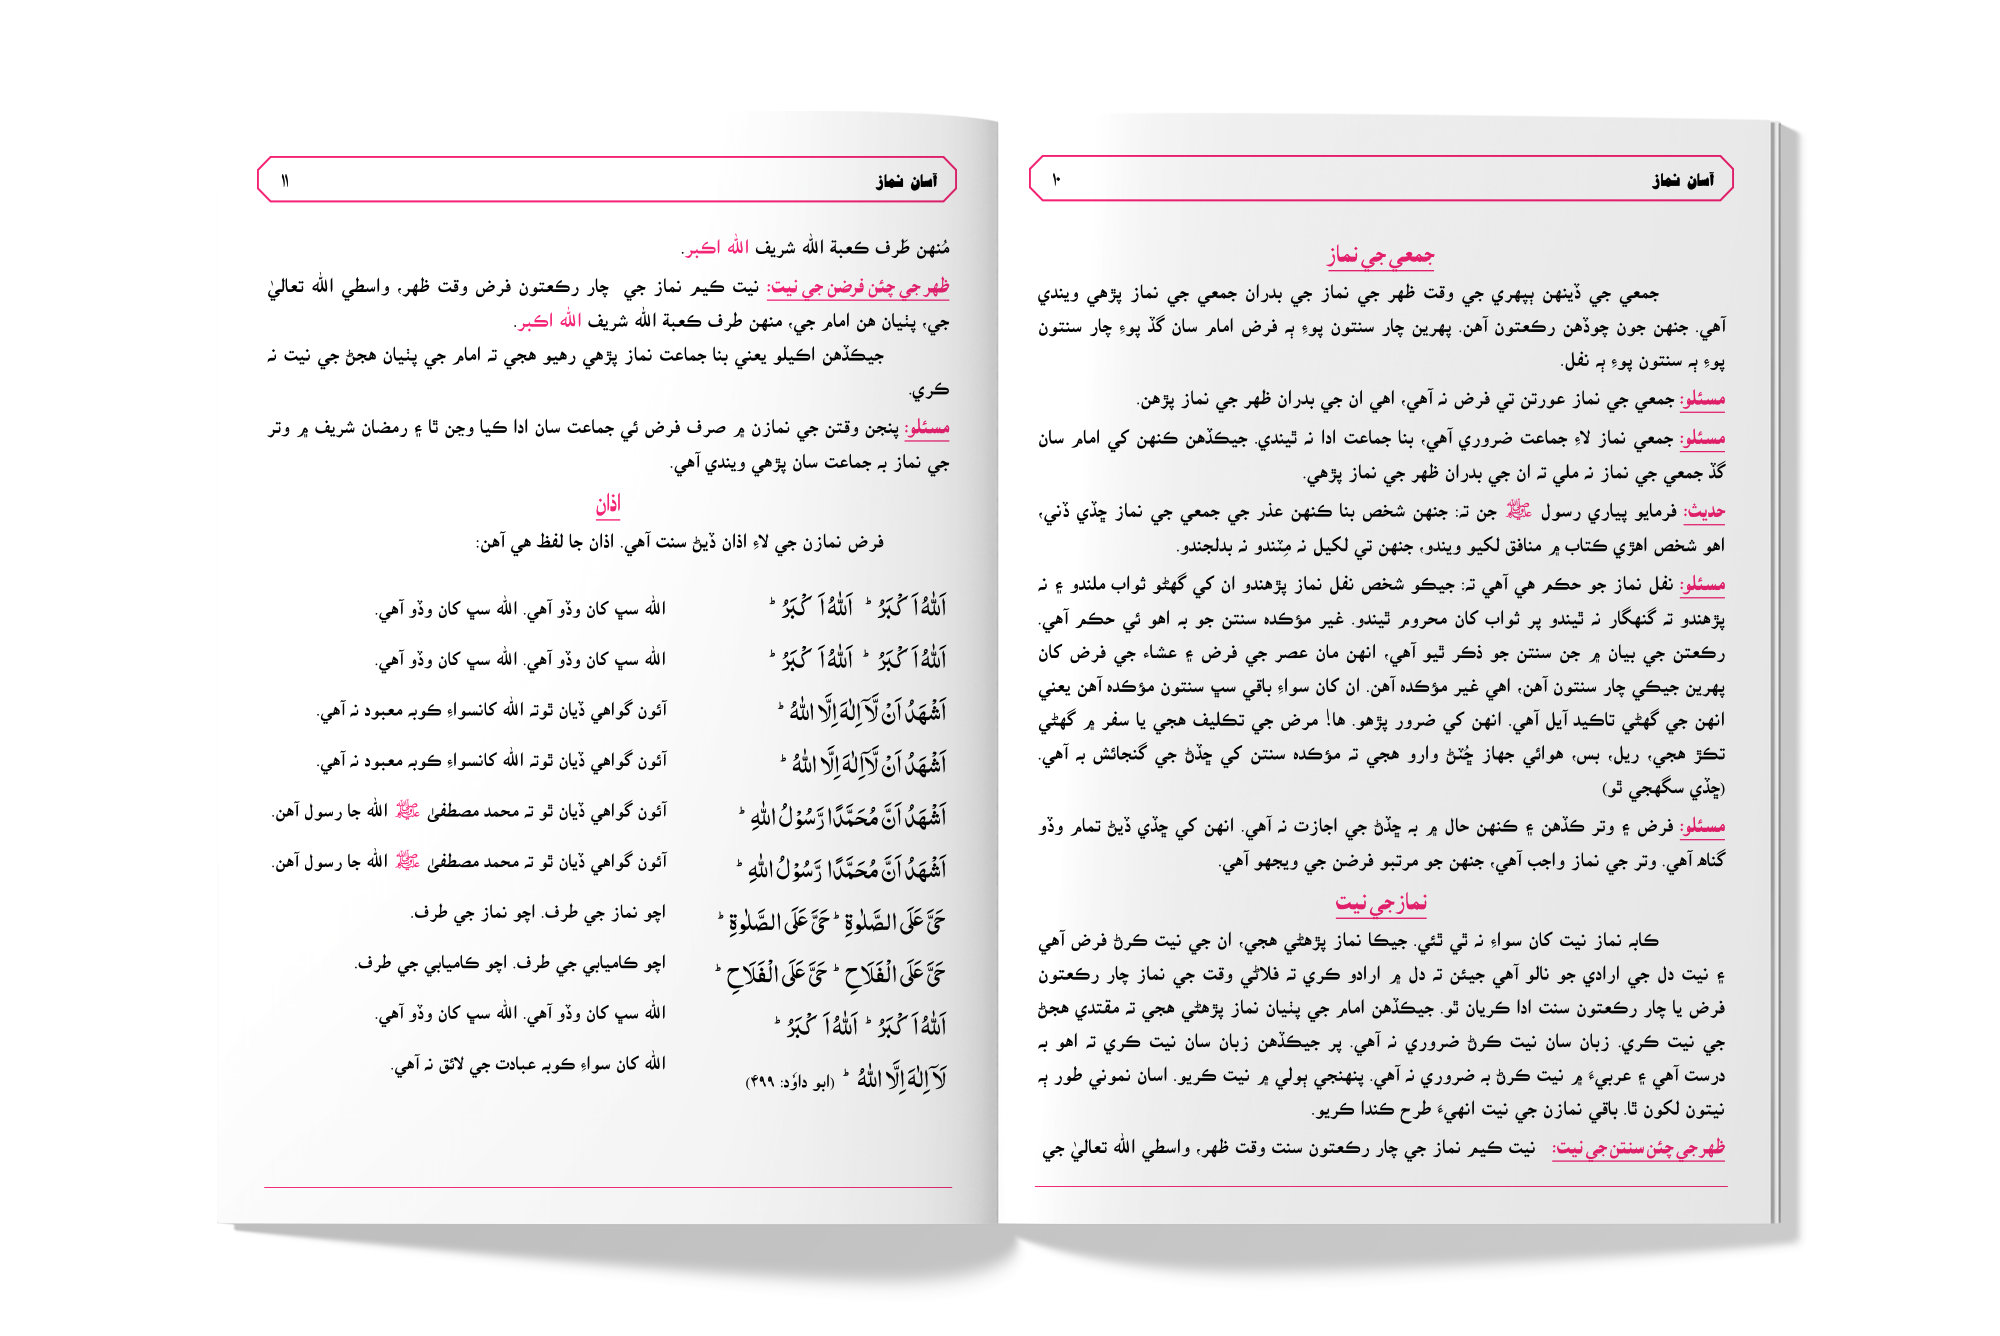 آسان نماز ۱۰
جمعي جي نماز
جمعي جي ڏينهن ٻپهري جي وقت ظهر جي نماز جي بدران جمعي جي نماز پڙهي ويندي
آهي. جنهن جون چوڏهن رڪعتون آهن. پهرين چار سنتون پوءِ ٻه فرض امام سان گڏ پوءِ چار سنتون
پوءِ ٻه سنتون پوءِ ٻه نفل.
مسئلو: جمعي جي نماز عورتن تي فرض نہ آهي، اهي ان جي بدران ظهر جي نماز پڙهن.
مسئلو: جمعي نماز لاءِ جماعت ضروري آهي، بنا جماعت ادا نہ ٿيندي. جيڪڏهن ڪنهن کي امام سان
گڏ جمعي جي نماز نہ ملي تہ ان جي بدران ظهر جي نماز پڙهي.
حديث: فرمايو پياري رسول ﷺ جن تہ: جنهن شخص بنا ڪنهن عذر جي جمعي جي نماز ڇڏي ڏني،
اهو شخص اهڙي ڪتاب ۾ منافق لکيو ويندو، جنهن تي لکيل نہ مِٽندو نہ بدلجندو.
مسئلو: نفل نماز جو حڪم هي آهي تہ: جيڪو شخص نفل نماز پڙهندو ان کي گهڻو ثواب ملندو ۽ نہ
پڙهندو تہ گنهگار نہ ٿيندو پر ثواب کان محروم ٿيندو. غير مؤڪده سنتن جو بہ اهو ئي حڪم آهي.
رڪعتن جي بيان ۾ جن سنتن جو ذڪر ٿيو آهي، انهن مان عصر جي فرض ۽ عشاء جي فرض کان
پهرين جيڪي چار سنتون آهن، اهي غير مؤڪده آهن. ان کان سواءِ باقي سڀ سنتون مؤڪده آهن يعني
انهن جي گهڻي تاڪيد آيل آهي. انهن کي ضرور پڙهو. ها! مرض جي تڪليف هجي يا سفر ۾ گهڻي
تڪڙ هجي، ريل، بس، هوائي جهاز ڇُٽڻ وارو هجي تہ مؤڪده سنتن کي ڇڏڻ جي گنجائش بہ آهي.
(ڇڏي سگهجي ٿو)
مسئلو: فرض ۽ وتر ڪڏهن ۽ ڪنهن حال ۾ بہ ڇڏڻ جي اجازت نہ آهي. انهن کي ڇڏي ڏيڻ تمام وڏو
گناهہ آهي. وتر جي نماز واجب آهي، جنهن جو مرتبو فرضن جي ويجهو آهي.
نماز جي نيت
ڪابہ نماز نيت کان سواءِ نہ ٿي ٿئي. جيڪا نماز پڙهڻي هجي، ان جي نيت ڪرڻ فرض آهي
۽ نيت دل جي ارادي جو نالو آهي جيئن تہ دل ۾ ارادو ڪري تہ فلاڻي وقت جي نماز چار رڪعتون
فرض يا چار رڪعتون سنت ادا ڪريان ٿو. جيڪڏهن امام جي پٺيان نماز پڙهڻي هجي تہ مقتدي هجڻ
جي نيت ڪري. زبان سان نيت ڪرڻ ضروري نہ آهي. پر جيڪڏهن زبان سان نيت ڪري تہ اهو بہ
درست آهي ۽ عربيءَ ۾ نيت ڪرڻ بہ ضروري نہ آهي. پنهنجي ٻولي ۾ نيت ڪريو. اسان نموني طور ٻہ
نيتون لکون ٿا. باقي نمازن جي نيت انهيءَ طرح ڪندا ڪريو.
ظهر جي چئن سنتن جي نيت: نيت ڪيم نماز جي چار رڪعتون سنت وقت ظهر، واسطي الله تعاليٰ جي
آسان نماز ۱۱
مُنهن طَرف ڪعبة الله شريف الله اڪبر.
ظهر جي چئن فرضن جي نيت: نيت ڪيم نماز جي چار رڪعتون فرض وقت ظهر، واسطي الله تعاليٰ
جي، پٺيان هن امام جي، منهن طرف ڪعبة الله شريف الله اڪبر.
جيڪڏهن اڪيلو يعني بنا جماعت نماز پڙهي رهيو هجي تہ امام جي پٺيان هجڻ جي نيت نہ
ڪري.
مسئلو: پنجن وقتن جي نمازن ۾ صرف فرض ئي جماعت سان ادا ڪيا وڃن ٿا ۽ رمضان شريف ۾ وتر
جي نماز بہ جماعت سان پڙهي ويندي آهي.
اذان
فرض نمازن جي لاءِ اذان ڏيڻ سنت آهي. اذان جا لفظ هي آهن:
اَللهُ اَكْبَرُ ؕ اَللهُ اَكْبَرُ ؕ الله سڀ کان وڏو آهي. الله سڀ کان وڏو آهي.
اَللهُ اَكْبَرُ ؕ اَللهُ اَكْبَرُ ؕ الله سڀ کان وڏو آهي. الله سڀ کان وڏو آهي.
اَشْهَدُ اَنْ لَّآ اِلٰهَ اِلَّا اللهُ ؕ آئون گواهي ڏيان ٿوتہ الله کانسواءِ ڪوبہ معبود نہ آهي.
اَشْهَدُ اَنْ لَّآ اِلٰهَ اِلَّا اللهُ ؕ آئون گواهي ڏيان ٿوتہ الله کانسواءِ ڪوبہ معبود نہ آهي.
اَشْهَدُ اَنَّ مُحَمَّدًا رَّسُوْلُ اللهِ ؕ آئون گواهي ڏيان ٿو تہ محمد مصطفيٰ ﷺ الله جا رسول آهن.
اَشْهَدُ اَنَّ مُحَمَّدًا رَّسُوْلُ اللهِ ؕ آئون گواهي ڏيان ٿو تہ محمد مصطفيٰ ﷺ الله جا رسول آهن.
حَيَّ عَلَى الصَّلٰوةِ ؕ حَيَّ عَلَى الصَّلٰوةِ ؕ اچو نماز جي طرف. اچو نماز جي طرف.
حَيَّ عَلَى الْفَلَاحِ ؕ حَيَّ عَلَى الْفَلَاحِ ؕ اچو ڪاميابي جي طرف. اچو ڪاميابي جي طرف.
اَللهُ اَكْبَرُ ؕ اَللهُ اَكْبَرُ ؕ الله سڀ کان وڏو آهي. الله سڀ کان وڏو آهي.
لَآ اِلٰهَ اِلَّا اللهُ ؕ (ابو داوٗد: ۴۹۹) الله کان سواءِ ڪوبہ عبادت جي لائق نہ آهي.